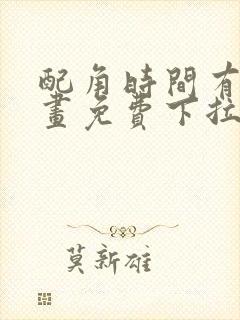 配角時間有
畫免費下拉
莫新雄